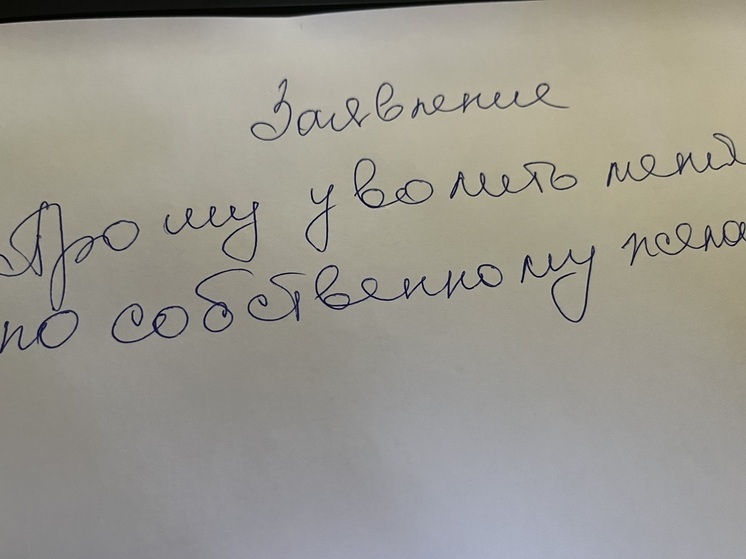 Заявление
Прошу уволить меня
по собственному жела